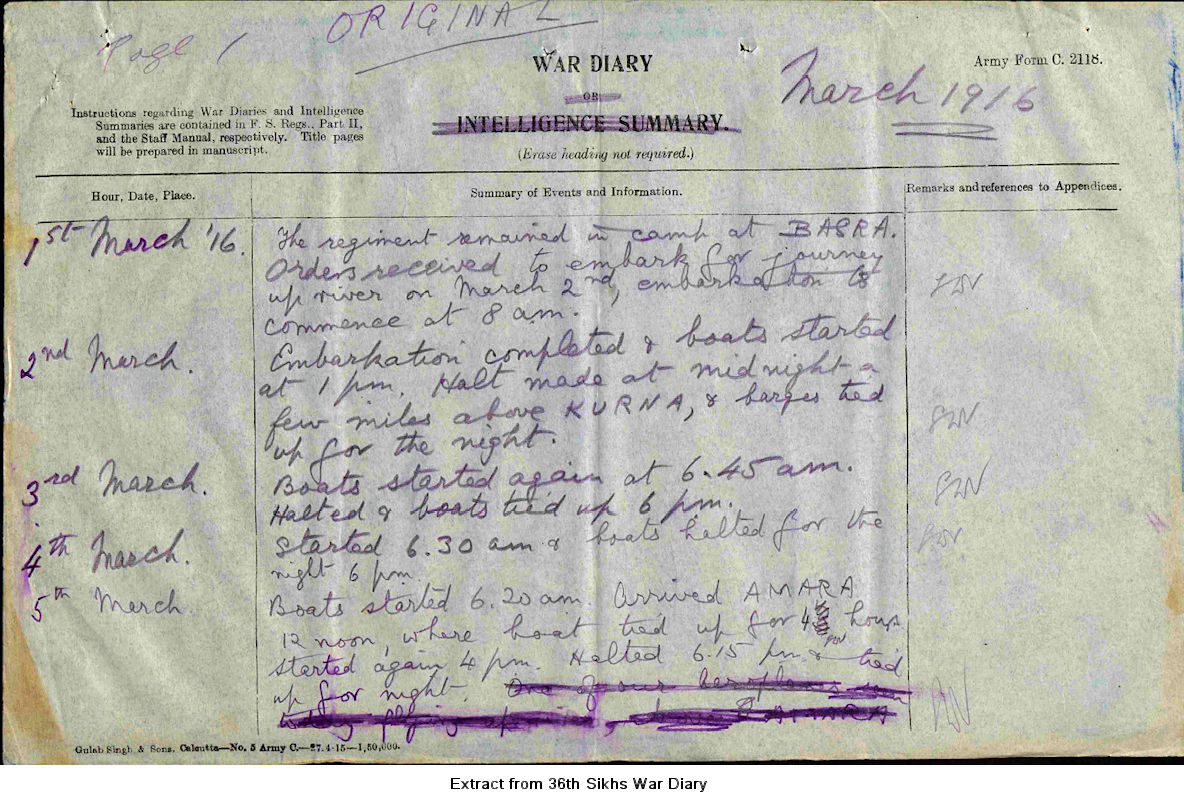 Page 1
ORIGINAL
WAR DIARY
OR
INTELLIGENCE SUMMARY.
(Erase heading not required.)
Army Form C. 2118.
March 1916
Instructions regarding War Diaries and Intelligence
Summaries are contained in F. S. Regs., Part II,
and the Staff Manual, respectively. Title pages
will be prepared in manuscript.
Hour, Date, Place.
Summary of Events and Information.
Remarks and references to Appendices.
1st March '16.
The regiment remained in camp at BASRA.
Orders received to embark for journey
up river on March 2nd, embarkation to
commence at 8 am.
2nd March.
Embarkation completed & boats started
at 1 pm. Halt made at midnight a
few miles above KURNA, & barges tied
up for the night.
3rd March.
Boats started again at 6.45 am.
Halted & boats tied up 6 pm.
4th March.
Started 6.30 am & boats halted for the
night 6 pm.
5th March
Boats started 6.20 am. Arrived AMARA
12 noon, where boat tied up for 4 hours
started again 4 pm. Halted 6.15 pm & tied
up for night. One of our aeroplanes
AMARA
Gulab Singh & Sons, Calcutta—No. 5 Army C.—27-4-15—1,50,000.
Extract from 36th Sikhs War Diary